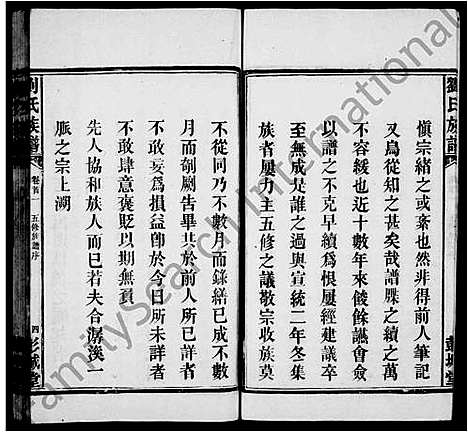 劉氏族譜
彭城堂
愼宗緒之或紊也然非得前人筆記
又烏從知之甚矣哉譜牒之續之萬
不容緩也近十數年來餕餘讌會僉
以譜之不克早續爲恨屢經建議卒
至無成是誰之過與宣統二年冬集
族者屢力主五修之議敬宗收族莫
不從同乃不數月而錄繕已成不數
月而剞劂告畢其於前人所已詳者
不敢妄爲損益卽於今日所未詳者
不敢肆意褒貶以期無負
先人協和族人而已若夫合潺溪一
脈之宗上溯
劉氏族譜
卷首一
五修族譜序
四
彭城堂
FamilySearch International